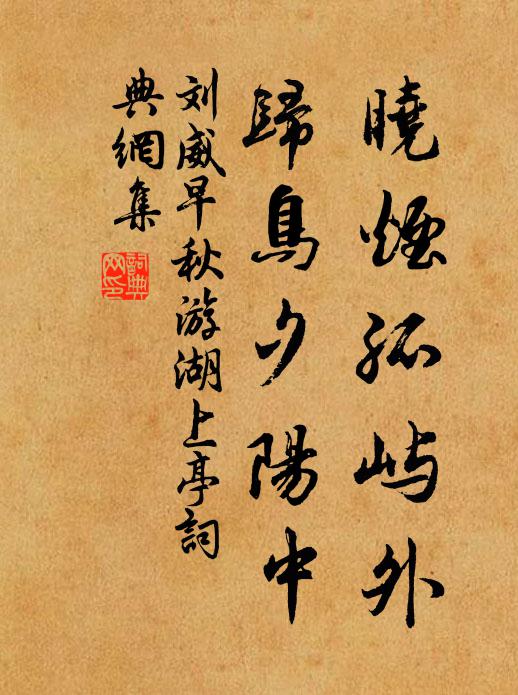 曉煙孤屿外
歸鳥夕陽中
刘威早秋游湖上亭詞
典網集
詞典网印